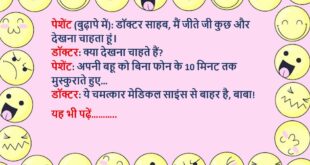 पेशेंट (बुढ़ापे में): डॉक्टर साहब, मैं जीते जी कुछ और
देखना चाहता हूं।
डॉक्टर: क्या देखना चाहते है?
पेशेंट: अपनी बहू को बिना फोन के 10 मिनट तक
मुस्कुराते हुए...
डॉक्टर: ये चमत्कार मेडिकल साइंस से बाहर है, बाबा!
यह भी पढ़ें...........